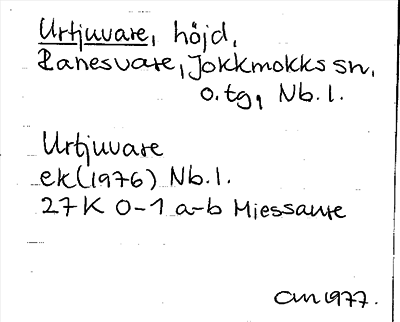 Urtjuvare, höjd,
Ranesvare, Jokkmokks sn,
o.tg, Nb.l.
Urtjuvare
ek (1976) Nb.l.
27K 0-1 a-b Miessaure
1977.